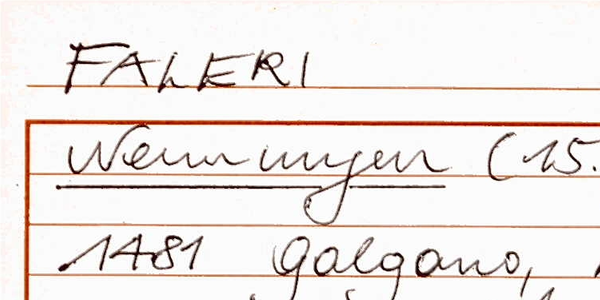 FALERI
Nennungen (15.
1481 Galgano,